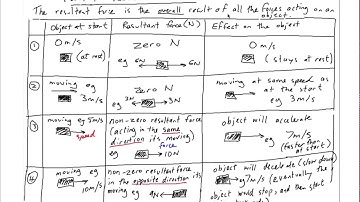 The resultant force is the overall result of all the forces acting on an object.
Object at start
Resultant force(N)
Effect on the object
1
0 m/s
(at rest)
zero N
eg 6N 6N
0 m/s
(stays at rest)
2
moving eg
3m/s
zero N
eg 3N 3N
moving at same speed as
at the start
eg 3m/s
3
moving eg 5m/s
speed
non-zero resultant force
(acting in the same
direction its moving)
force
eg 10N
object will accelerate
eg 7m/s
(faster than
at start)
4
moving eg
10m/s
non-zero resultant force
in the opposite direction its
moving eg
object will decelerate (slow down)
eg 7m/s (eventually the
object would stop, and then start